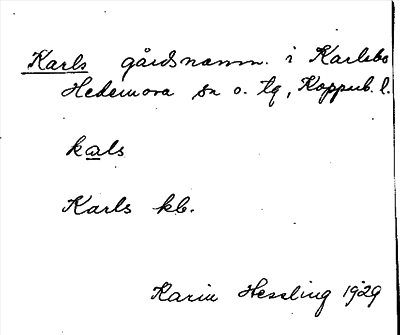 Karls gårdsnamn. i Karlsbo
Hedemora sn o. tg, Koppub. l.
kals
Karls kb.
Karin Hessling 1929